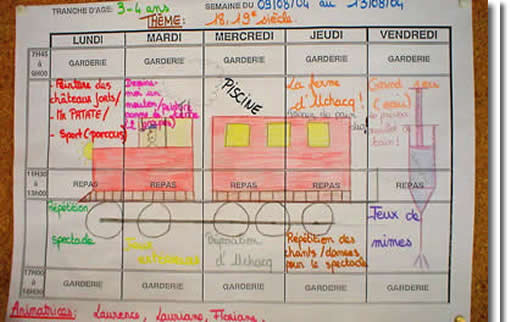 TRANCHE D'AGE: 3-4 ans SEMAINE DU 09/08/04 au 13/08/04
THÈME: 18, 19e siècle.
LUNDI MARDI MERCREDI JEUDI VENDREDI
7H45 à 9H00 GARDERIE GARDERIE GARDERIE GARDERIE GARDERIE
- Peinture des
châteaux forts/
- Mr PATATE/
- Sport (parcours)
Dessine-
moi un
mouton/peinture
PISCINE
La ferme
d'Uchacq!
Grand jeu
(eau)
11H30 à 13H00 REPAS REPAS REPAS REPAS REPAS
Répétition
spectacle
Jeux
extérieurs
Préparation
d'Uchacq
Répétition des
chants/danses
pour le spectacle
Jeux de
mimes
17H00 à GARDERIE GARDERIE GARDERIE GARDERIE GARDERIE
Animatrices: Laurence, Lauriane, Floriane.